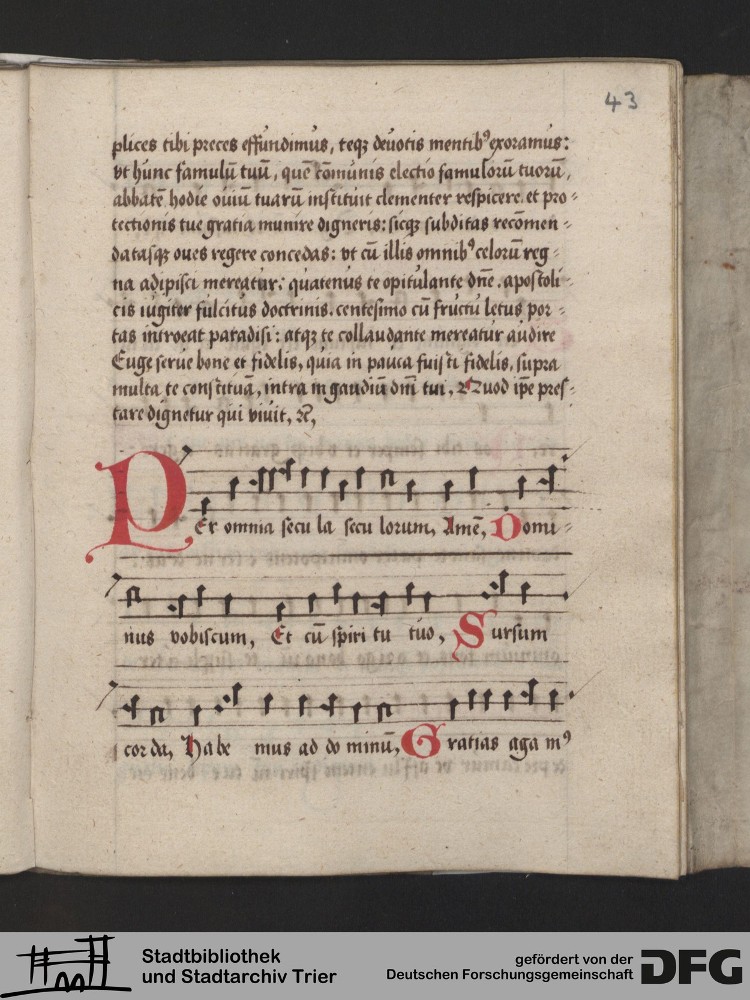 43
plices tibi preces effundimus, teqꝫ deuotis mentibꝰ exoramus:
vt hunc famulū tuū, quē cōmunis electio famulorū tuorū,
abbatē hodie ouiū tuarū instituit clementer respicere, et pro-
tectionis tue gratia munire digneris: sicqꝫ subditas recōmen-
datasqꝫ oues regere concedas: vt cū illis omnibꝰ celorū reg-
na adipisci mereatur: quatenus te opitulante dn̄e, apostoli-
cis iugiter fulcitus doctrinis, centesimo cū fructu letus por-
tas introeat paradisi: atqꝫ te collaudante mereatur audire
Euge serue bone et fidelis, quia in pauca fuisti fidelis, supra
multa te constituā, intra in gaudiū dn̄i tui, Quod ip̄e pres-
tare dignetur qui viuit, ꝛc̄,
Per omnia secu la secu lorum, Amē, Domi-
nus vobiscum, Et cū spiri tu tuo, Sursum
cor da, Habe mus ad do minū, Gratias aga mꝰ
Stadtbibliothek
und Stadtarchiv Trier
gefördert von der
Deutschen Forschungsgemeinschaft
DFG